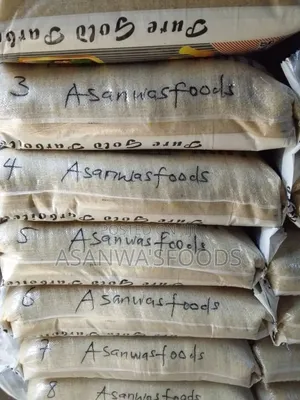 Pure Gold Parbo
3 Asanwasfoods
Pure Gold Parboile
4 Asanwasfoods
5 Asanwasfoods
ASANWA'SFOODS
6 Asanwasfoods
7 Asanwasfoods
8 Asanwasfoods